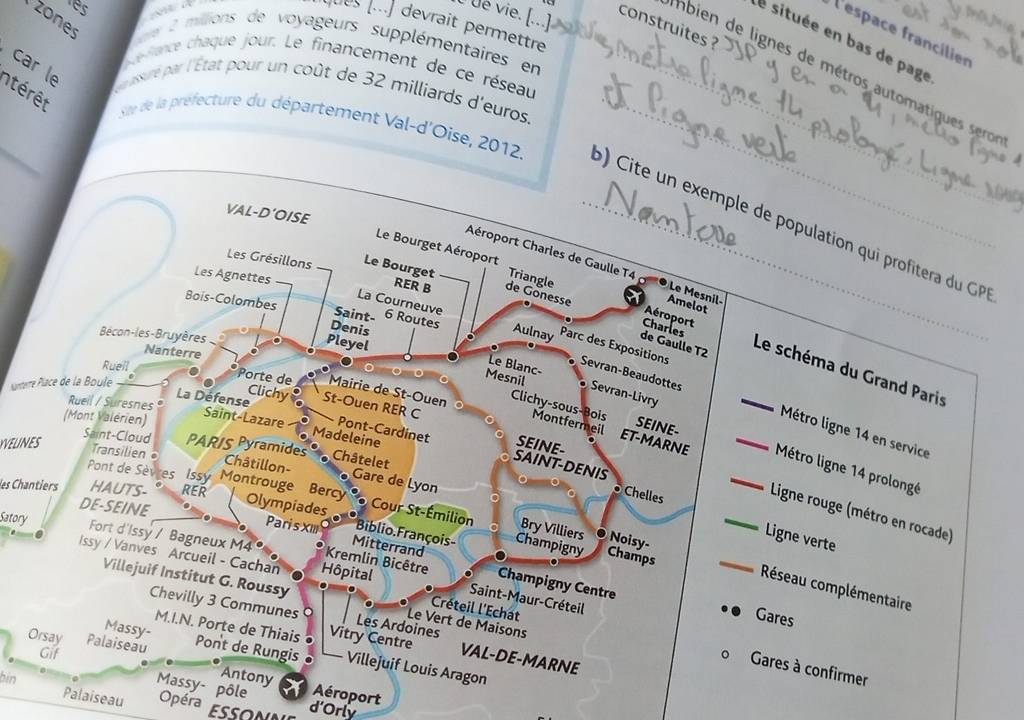 zones
car le
de vie. [...]
[...] devrait permettre
2 millions de voyageurs supplémentaires en
chaque jour. Le financement de ce réseau
assuré par l'État pour un coût de 32 milliards d'euros.
Site de la préfecture du département Val-d'Oise, 2012.
l'espace francilien
située en bas de page.
de lignes de métros automatiques seront
construites ?
métro ligne 14 prolongé, Ligne
et ligne verte
b) Cite un exemple de population qui profitera du GPE.
Nanterre
VAL-D'OISE
Aéroport Charles de Gaulle T4
Le Mesnil-
Amelot
Le Bourget Aéroport
Triangle
de Gonesse
Aéroport
Charles
de Gaulle T2
Les Grésillons
Le Bourget
RER B
Les Agnettes
La Courneuve
6 Routes
Bois-Colombes
Saint-
Denis
Pleyel
Aulnay
Parc des Expositions
Bécon-les-Bruyères
Nanterre
Le Blanc-
Mesnil
Sevran-Beaudottes
Sevran-Livry
Rueil
Nanterre Place de la Boule
La Défense
Porte de
Clichy
Mairie de St-Ouen
St-Ouen RER C
Clichy-sous-Bois
Montfermeil
SEINE-
ET-MARNE
Rueil / Suresnes
(Mont Valérien)
Saint-Lazare
Pont-Cardinet
Madeleine
YVELINES
Saint-Cloud
Transilien
PARIS
Pyramides
Châtelet
Gare de Lyon
SEINE-
SAINT-DENIS
Chelles
Pont de Sèvres
Issy
RER
Châtillon-
Montrouge
Bercy
Cour St-Émilion
les Chantiers
HAUTS-
DE-SEINE
Olympiades
Paris XIII
Biblio.François-
Mitterrand
Bry Villiers
Champigny
Noisy-
Champs
Satory
Fort d'Issy /
Issy / Vanves
Bagneux M4
Arcueil - Cachan
Kremlin Bicêtre
Hôpital
Champigny Centre
Villejuif Institut G. Roussy
Saint-Maur-Créteil
Chevilly 3 Communes
Créteil l'Echat
Le Vert de Maisons
M.I.N. Porte de Thiais
Les Ardoines
Vitry Centre
Pont de Rungis
Villejuif Louis Aragon
VAL-DE-MARNE
Orsay
Gif
Massy-
Palaiseau
Palaiseau
Massy-
Opéra
Antony
pôle
Aéroport
d'Orly
ESSONNE
Le schéma du Grand Paris
Métro ligne 14 en service
Métro ligne 14 prolongé
Ligne rouge (métro en rocade)
Ligne verte
Réseau complémentaire
Gares
Gares à confirmer